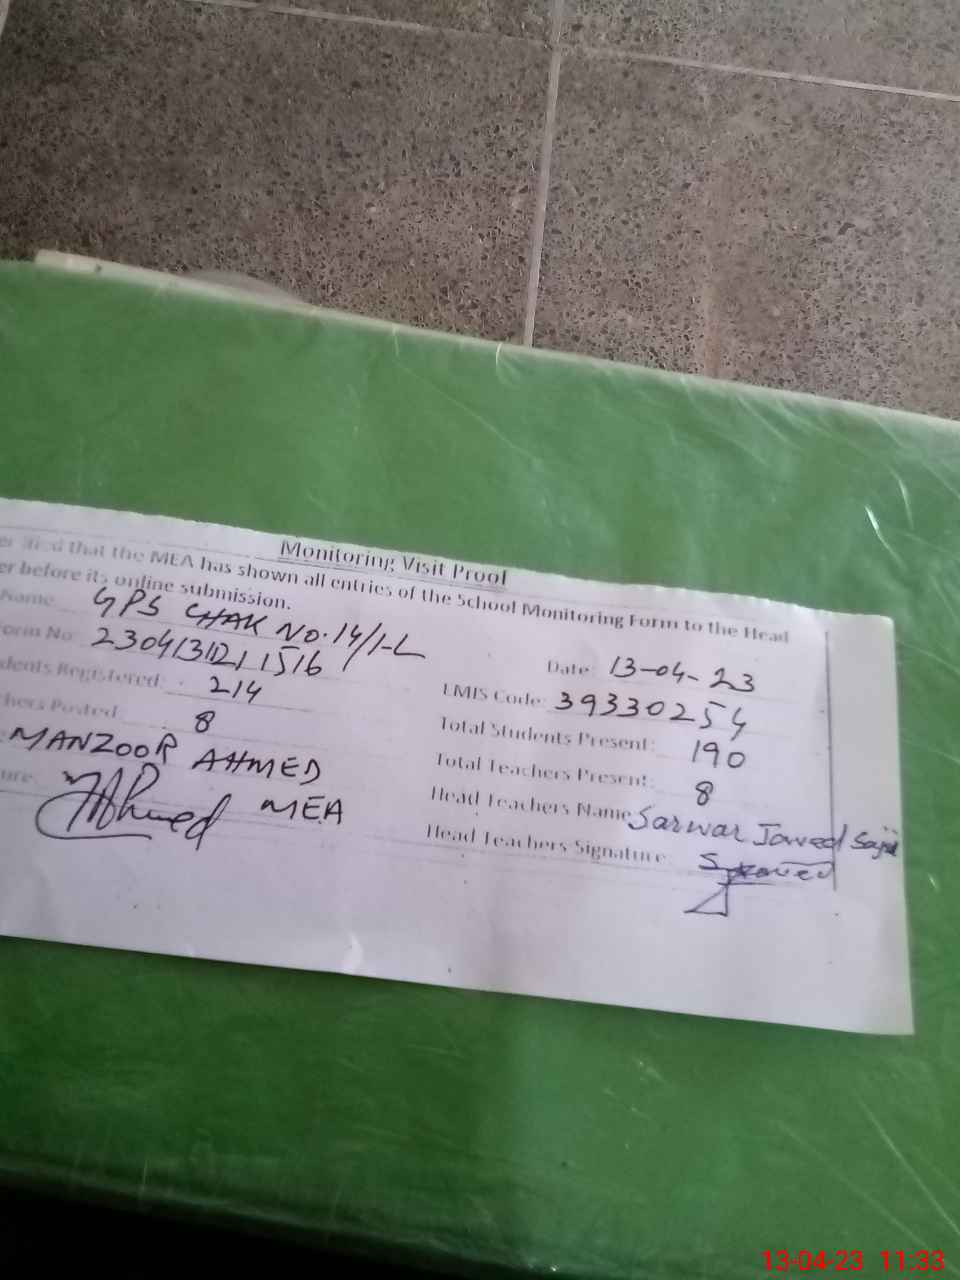 Monitoring Visit Proof
that the MEA has shown all entries of the School Monitoring Form to the Head
er before its online submission.
Name GPS CHAK NO.14/1-L
Date: 13-04-23
orm No: 23041311211516
EMIS Code: 39330254
dents Registered: 214
Total Students Present: 190
hers Posted 8
Total Teachers Present: 8
MANZOOR AHMED
Head Teachers Name Sarwar Javed
ure: Ahmed MEA
Head Teachers Signature:
13-04-23 11:33